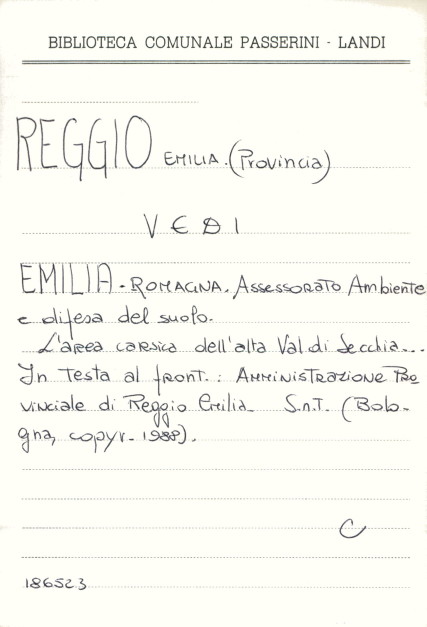 BIBLIOTECA COMUNALE PASSERINI - LANDI
REGGIO EMILIA. (Provincia)
VEDI
EMILIA - ROMAGNA. Assessorato Ambiente
e difesa del suolo.
L'area carsica dell'alta Val di Secchia...
In testa al front. : Amministrazione Pro
vinciale di Reggio Emilia. S.n.t. (Bolo-
gna, copyr. 1988).
C
186523